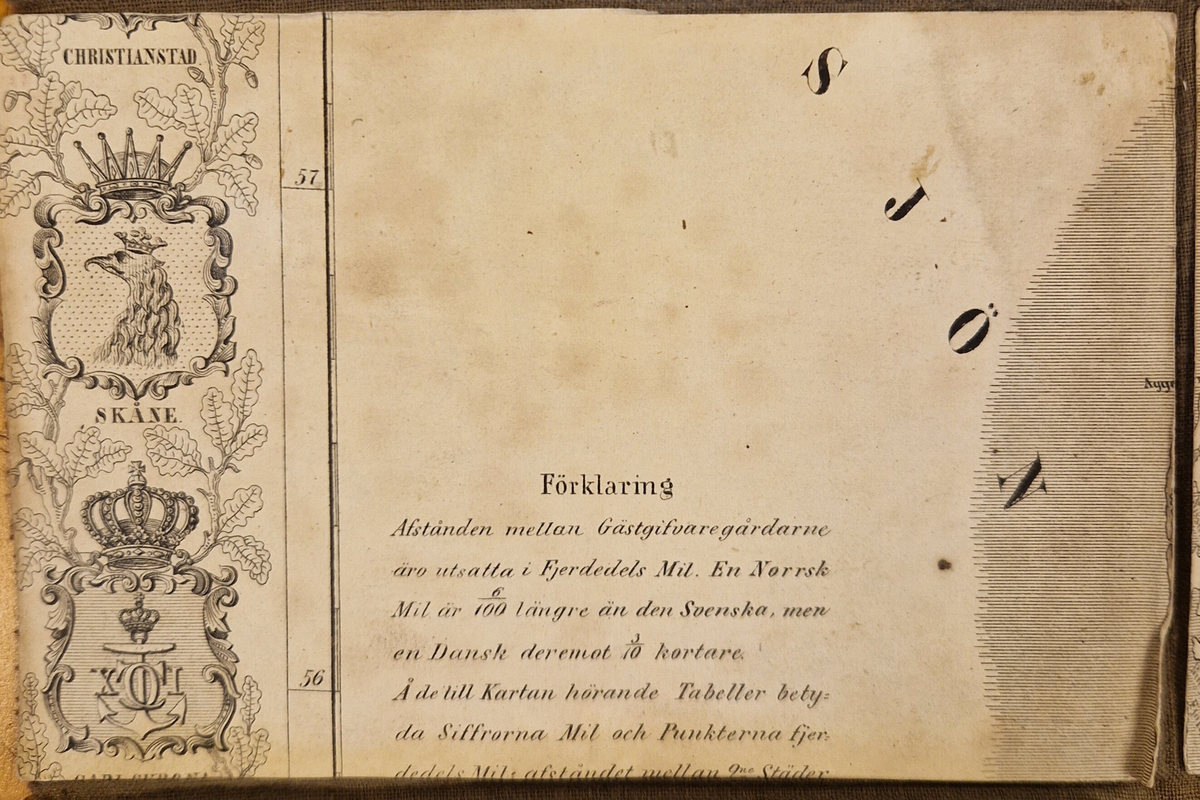 CHRISTIANSTAD
SKÅNE.
57
56
S
J
Ö
N
Förklaring
Afstånden mellan Gästgifvaregårdarne
äro utsatta i Fjerdedels Mil. En Norrsk
Mil är 6/100 längre än den Svenska, men
en Dansk deremot 3/10 kortare.
Å de till Kartan hörande Tabeller bety=
da Siffrorna Mil och Punkterna fjer=
dedels Mil: afståndet mellan 2ne Städer